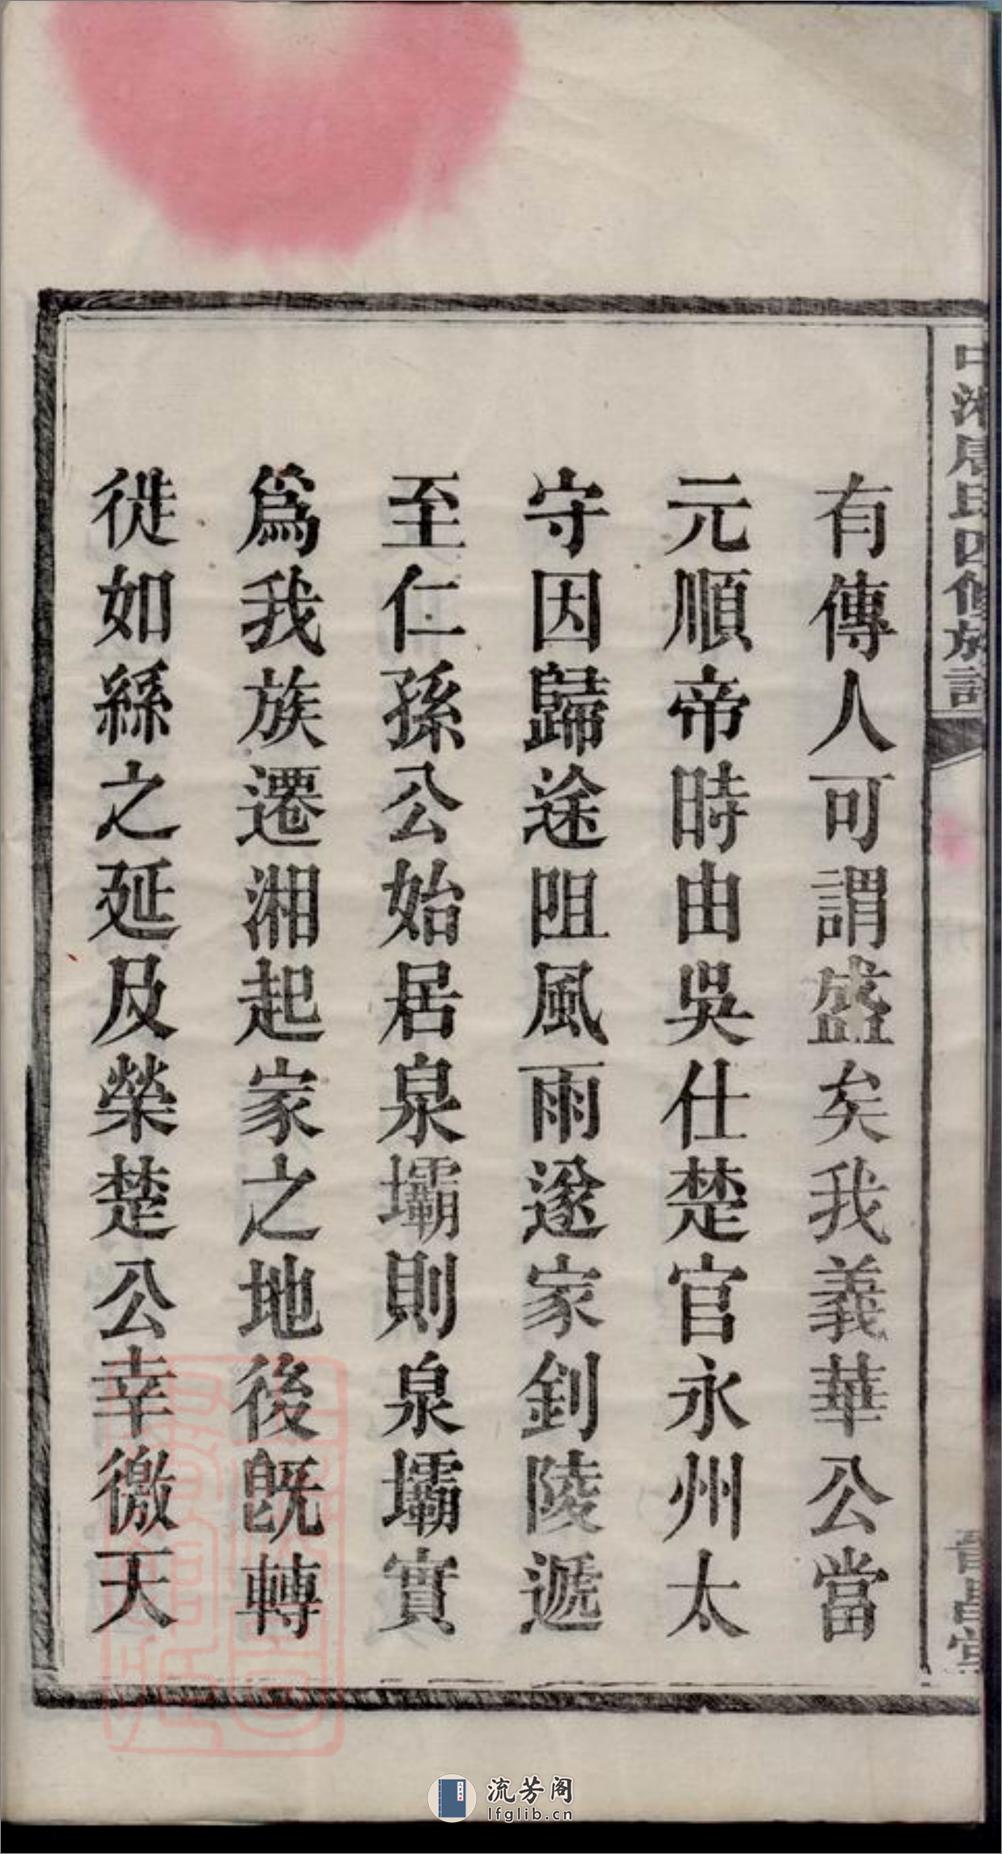 中湘唐氏四修族譜
晉昌堂
有傳人可謂盛矣我義華公當
元順帝時由吳仕楚官永州太
守因歸途阻風雨遂家釗陵遞
至仁孫公始居泉壩則泉壩實
爲我族遷湘起家之地後旣轉
徙如絲之延及榮楚公幸徼天
流芳阁
lfglib.cn